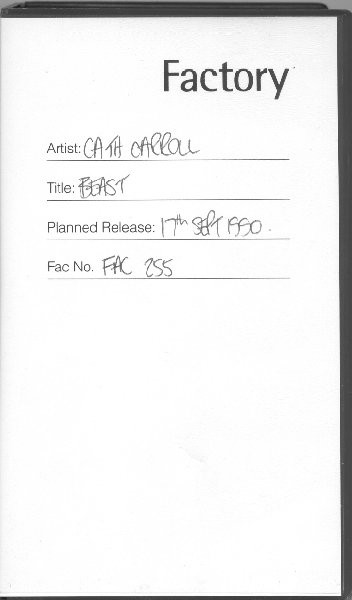 Factory
Artist: CATH CARROLL
Title: BEAST
Planned Release: 17th SEPT 1990.
Fac No. FAC 255